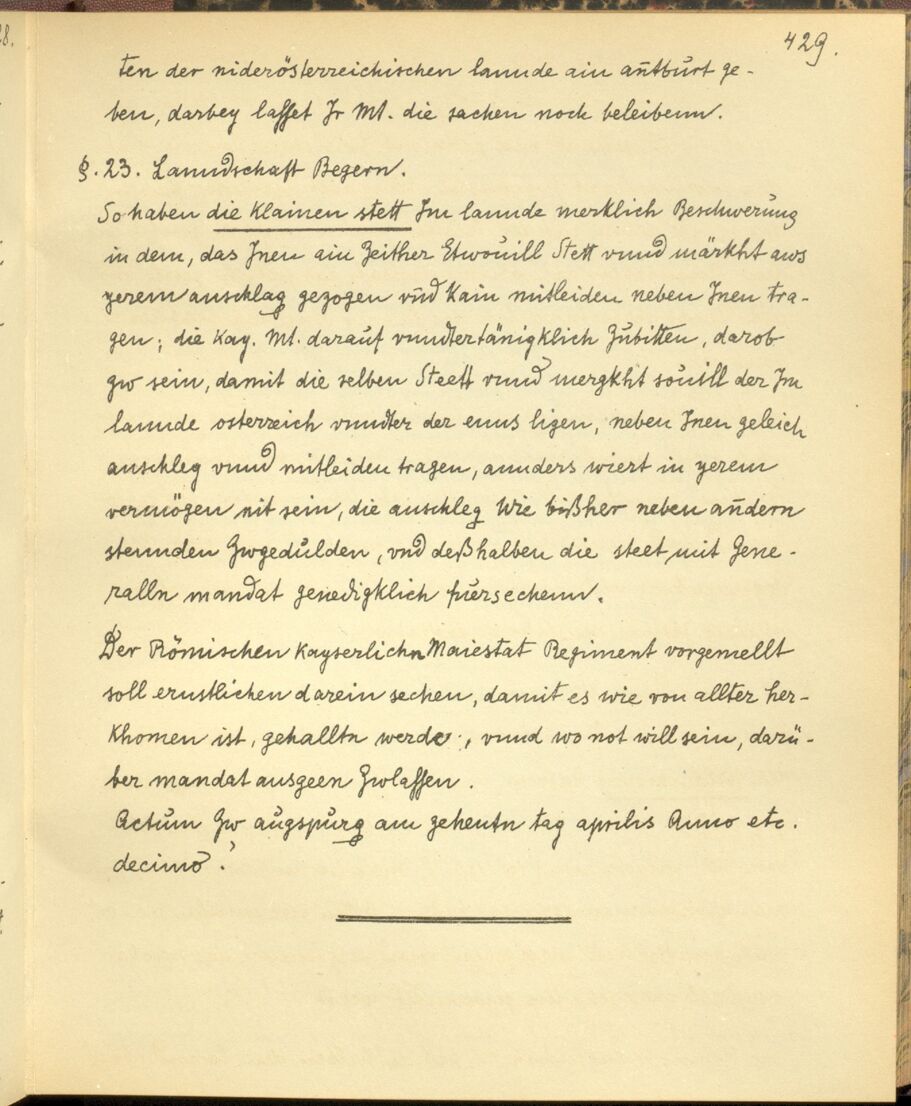 429.
ten der niderösterreichischen lannde ain antburt ge-
ben, darbey lasset Jr Mt. die sachen noch beleibenn.
§. 23. Lanndschaft Begern.
So haben die Klainen stett Jm lannde merklich Beschwerung
in dem, das Jnen ain Zeither Etwouill Stett vnnd märkht aws
yerem anschlag gezogen vnd Kain mitleiden neben Jnen tra-
gen; die Kay. Mt. darauf vnndtertänigklich Zubitten, darob
zw sein, damit die selben Steett vnnd mergkht souill der Jm
lannde osterreich vnndter der enns ligen, neben Jnen geleich
anschleg vnnd mitleiden tragen, annders wiert in yerem
vermögen nit sein, die anschleg Wie bißher neben andern
stennden Zwgedulden, vnd deßhalben die steet mit Gene-
ralln mandat genedigklich fuersechenn.
Der Römischen Kayserlichn Maiestat Regiment vorgemellt
soll ernstlichen darein sechen, damit es wie von allter her-
Khomen ist, gehalltn werde, vnnd wo not will sein, darü-
ber mandat ausgeen Zwlassen.
Actum Zw augspurg am zehentn tag aprilis Anno etc.
decimo.